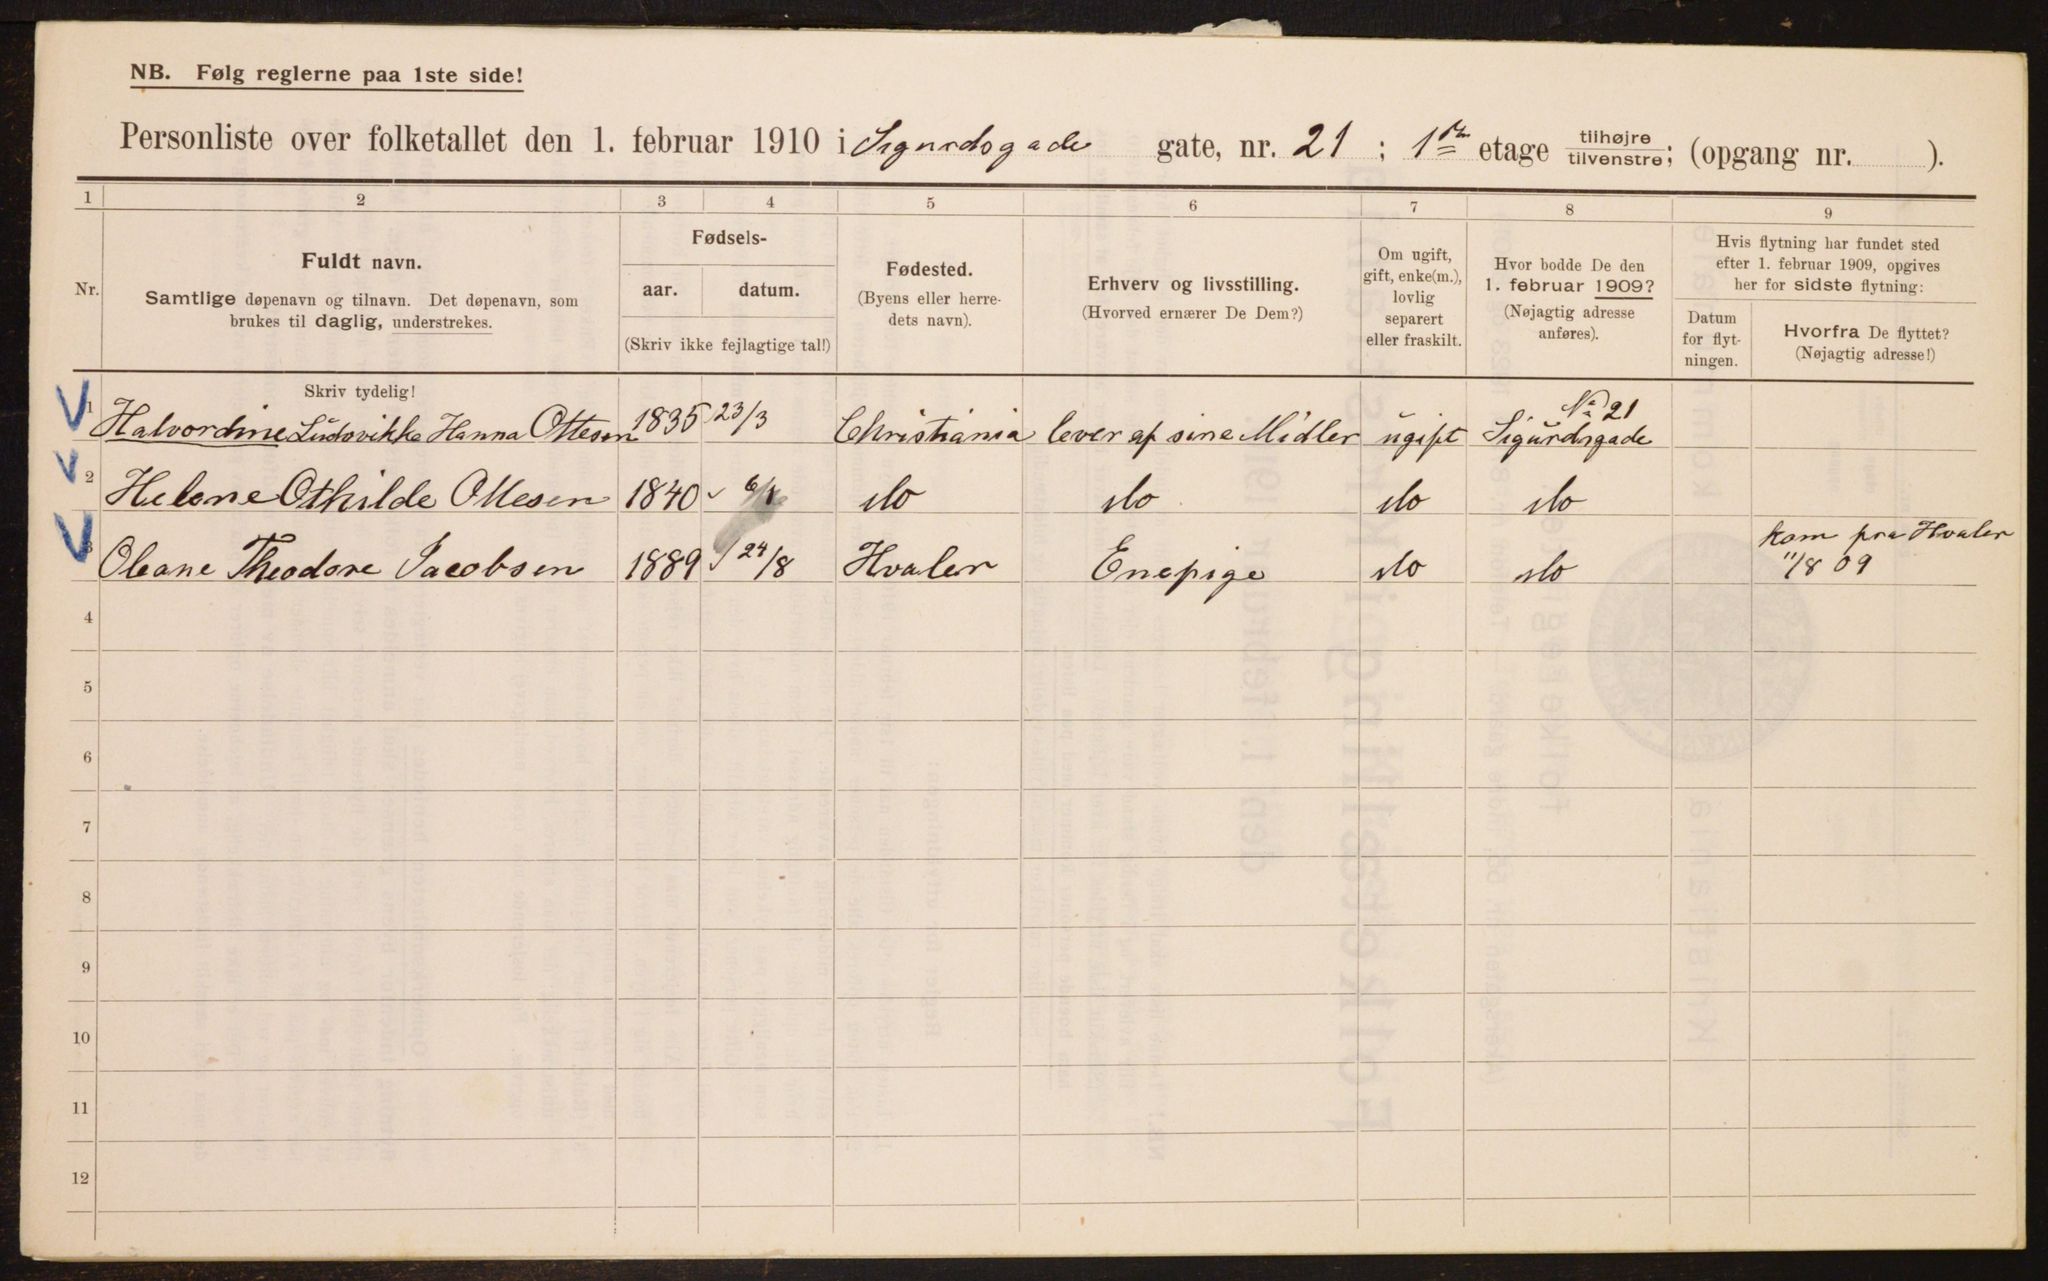 NB. Følg reglerne paa 1ste side!
Personliste over folketallet den 1. februar 1910 i Sigurdsgade gate, nr. 21 ; 1ste etage tilhøjre/tilvenstre; (opgang nr. ).
1 2 3 4 5 6 7 8 9
Nr.
Fuldt navn.
Samtlige døpenavn og tilnavn. Det døpenavn, som
brukes til daglig, understrekes.
Fødsels-
aar. datum.
(Skriv ikke fejlagtige tal!)
Fødested.
(Byens eller herre-
dets navn).
Erhverv og livsstilling.
(Hvorved ernærer De Dem?)
Om ugift,
gift, enke(m.),
lovlig
separert
eller fraskilt.
Hvor bodde De den
1. februar 1909?
(Nøjagtig adresse
anføres).
Hvis flytning har fundet sted
efter 1. februar 1909, opgives
her for sidste flytning:
Datum
for flyt-
ningen.
Hvorfra De flyttet?
(Nøjagtig adresse!)
Skriv tydelig!
1 Halvordine Ludovikke Hanna Ottesen 1835 23/3 Christiania lever af sine Midler ugift No 21 Sigurdsgade
2 Helene Othilde Ottesen 1840 6/1 do do do do
3 Oleane Theodore Jacobsen 1889 24/8 Hvaler Enepige do do kom fra Hvaler
11/8 09
4
5
6
7
8
9
10
11
12